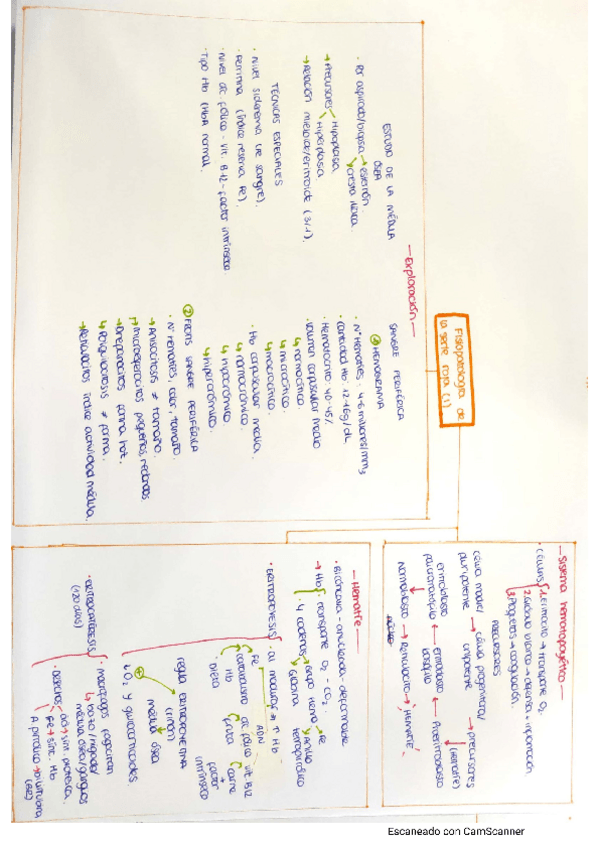 Fisiopatología de
la serie roja (1)
— Sistema hematopoyético —
· CÉLULAS
1. Eritrocito → transporte O₂.
2. Glóbulo blanco → defensa + inflamación.
3. Plaquetas → coagulación.
PRECURSORES
célula madre/ → célula progenitora/ → precursores
pluripotente
unipotente
(Hematíe)
eritroblasto ← eritroblasto ← Proeritroblasto
policromatófilo
basófilo
normoblasto → Reticulocito → HEMATÍE
— Hematíe —
· Bicóncava - anucleada - deformable
→ Hb: transporte O₂ - CO₂.
↳ 4 cadenas
Grupo Hemo
Fe
Anillo
tetrapirrólico
Globina
· ERITROPOYESIS: al madurar ⇒ ↑ Hb
Fe
Hb
dieta
ADN
vit. B12
carne
+
factor
intrínseco
regula ERITROPOYETINA
(riñón)
médula ósea
↓O₂ y glucocorticoides
· ERITROCATERESIS:
(120 días)
· macrófagos fagocitan
↳ bazo/hígado/
médula ósea/ganglios
· DESECHOS
aa → sínt. proteica.
Fe → sínt. Hb
— Exploración —
SANGRE PERIFÉRICA
① HEMOGRAMA
· Nº Hematíes: 4-6 millones/mm3
· cantidad Hb: 12-16g/dL
· Hematocrito: 40-45%
· volumen corpuscular medio
↳ normocítico.
↳ microcítico.
↳ macrocítico.
· Hb corpuscular media.
↳ normocrómico.
↳ hipocrómico.
↳ hipercrómico.
② FROTIS SANGRE PERIFÉRICA
· Nº Hematíes, color, tamaño.
→ Anisocitosis ≠ tamaño.
↳ microesferocitos pequeños, redondos
→ Drepanocitos forma hoz.
↳ Poiquilocitosis ≠ forma.
→ Reticulocitos índice actividad médula.
ESTUDIO DE LA MÉDULA
ÓSEA
· Por aspirado/biopsia → esternón
↳ cresta ilíaca.
→ Precursores
Hipoplasia
Hiperplasia
→ Relación mieloide/eritroide (3/1).
TÉCNICAS ESPECIALES
· Nivel sideremia (Fe sangre).
· Ferritina (índice reserva Fe).
· Nivel de fólico - Vit. B12 - factor intrínseco
· Tipo Hb (HbA normal).
Escaneado con CamScanner